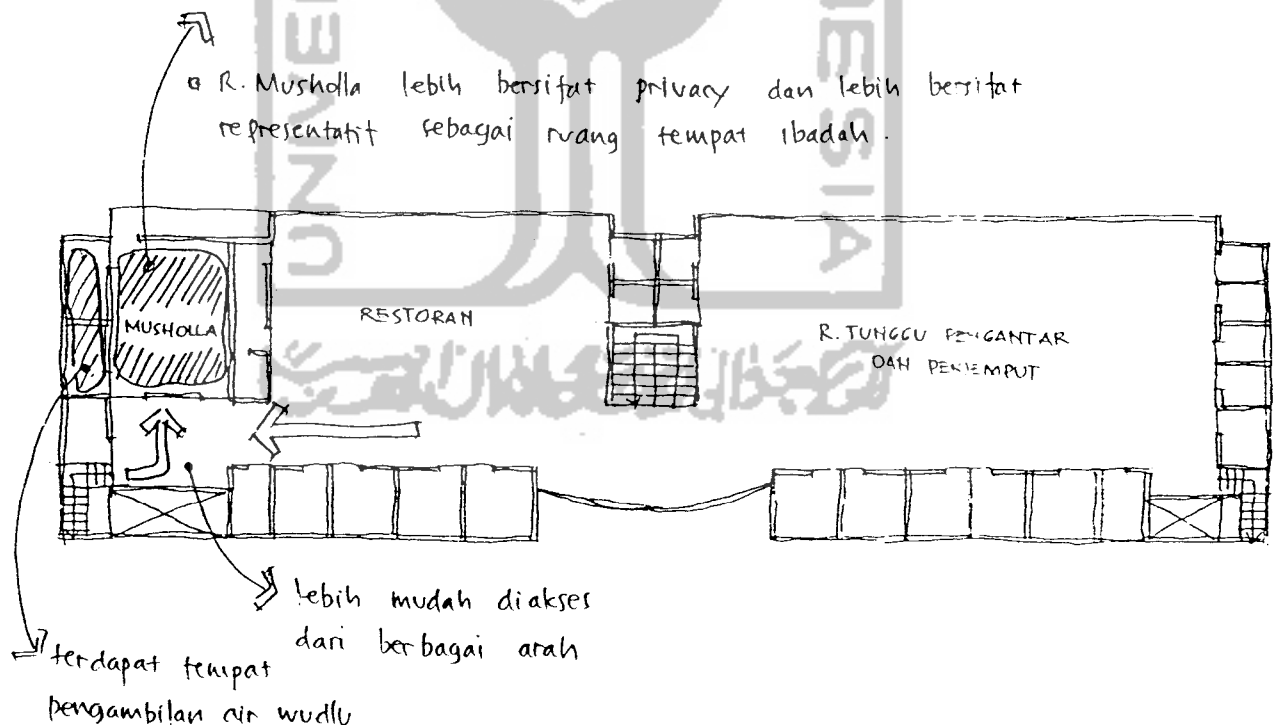 R. Musholla lebih bersifat privacy dan lebih bersifat
representatif sebagai ruang tempat ibadah.
MUSHOLLA
RESTORAN
R. TUNGGU PENGANTAR
DAN PENJEMPUT
lebih mudah diakses
dari berbagai arah
terdapat tempat
pengambilan air wudlu
NESIA